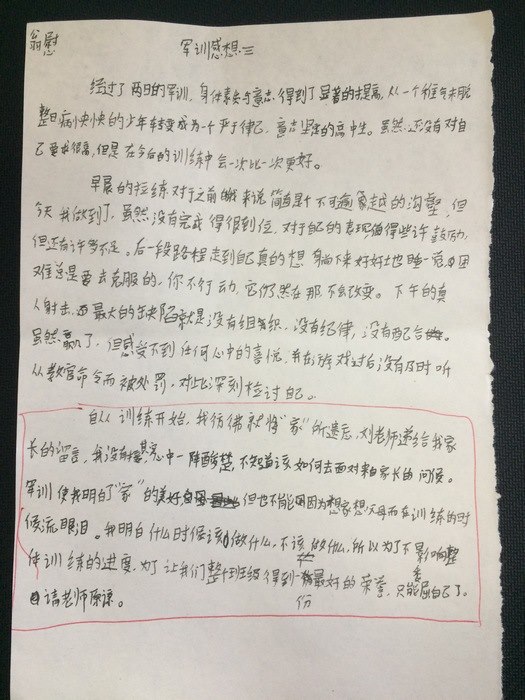 翁慰
军训感想三
经过了两日的军训，身体素质与意志得到了显著的提高，从一个稚气未脱
整日病怏怏的少年转变成为一个严于律己，意志坚强的高中生。虽然还没有对自
己要求很高，但是在今后的训练中会一次比一次更好。
早晨的拉练对于之前的我来说简直是个不可逾越的沟壑，但
今天我做到了，虽然没有完成得很到位，对于自己的表现值得些许鼓励，
但还有许多不足。后一段路程走到自己真的想躺下来好好地睡一觉，困
难总是要去克服的，你不行动，它仍然在那不会改变。下午的真
人射击，最大的缺陷就是没有组织，没有纪律，没有配合。
虽然赢了，但感受不到任何心中的喜悦，并在游戏过后没有及时听
从教官命令而被处罚，对此深刻检讨自己。
自从训练开始，我仿佛就将“家”所遗忘，刘老师递给我家
长的留言，我没有哭，心中一阵酸楚，不知道该如何去面对来自家长的问候。
军训使我明白了“家”的美好，但也不能因为想家想父母而在训练的时
候流眼泪。我明白什么时候该做什么，不该做什么，所以为了不影响整
体训练的进度，为了让我们整个班级得到一份最好的荣誉，只能委屈自己了。
请老师原谅。